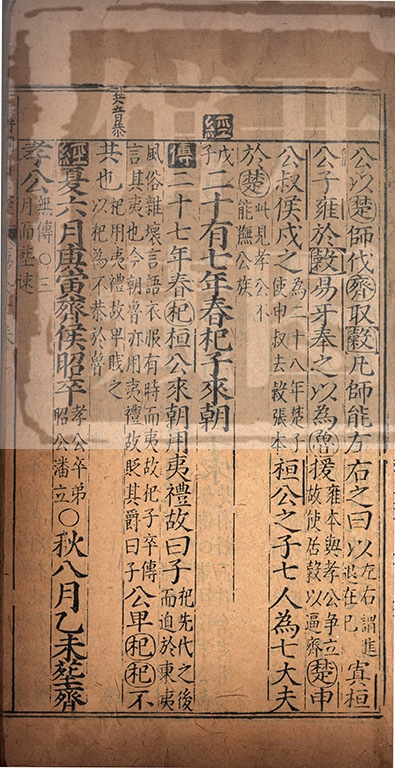 公以楚師伐齊取穀凡師能左右之曰以左右謂進退在己寘桓
公子雍於穀易牙奉之以為魯援雍本與孝公爭立故使居穀以逼齊楚申
公叔侯戍之為二十八年楚子使申叔去穀張本桓公之子七人為七大夫
於楚此見孝公不能撫公族
經戊子二十有七年春杞子來朝
傳二十七年春杞桓公來朝用夷禮故曰子杞先代之後而迫於東夷
風俗雜壞言語衣服有時而夷故杞子卒傳言其夷也今朝魯亦用夷禮故貶其爵曰子公卑杞杞不
共也杞用夷禮故卑賤之以杞為不恭於魯
經夏六月庚寅齊侯昭卒孝公卒弟昭公潘立〇秋八月乙未葬齊
孝公無傳〇三月而葬速